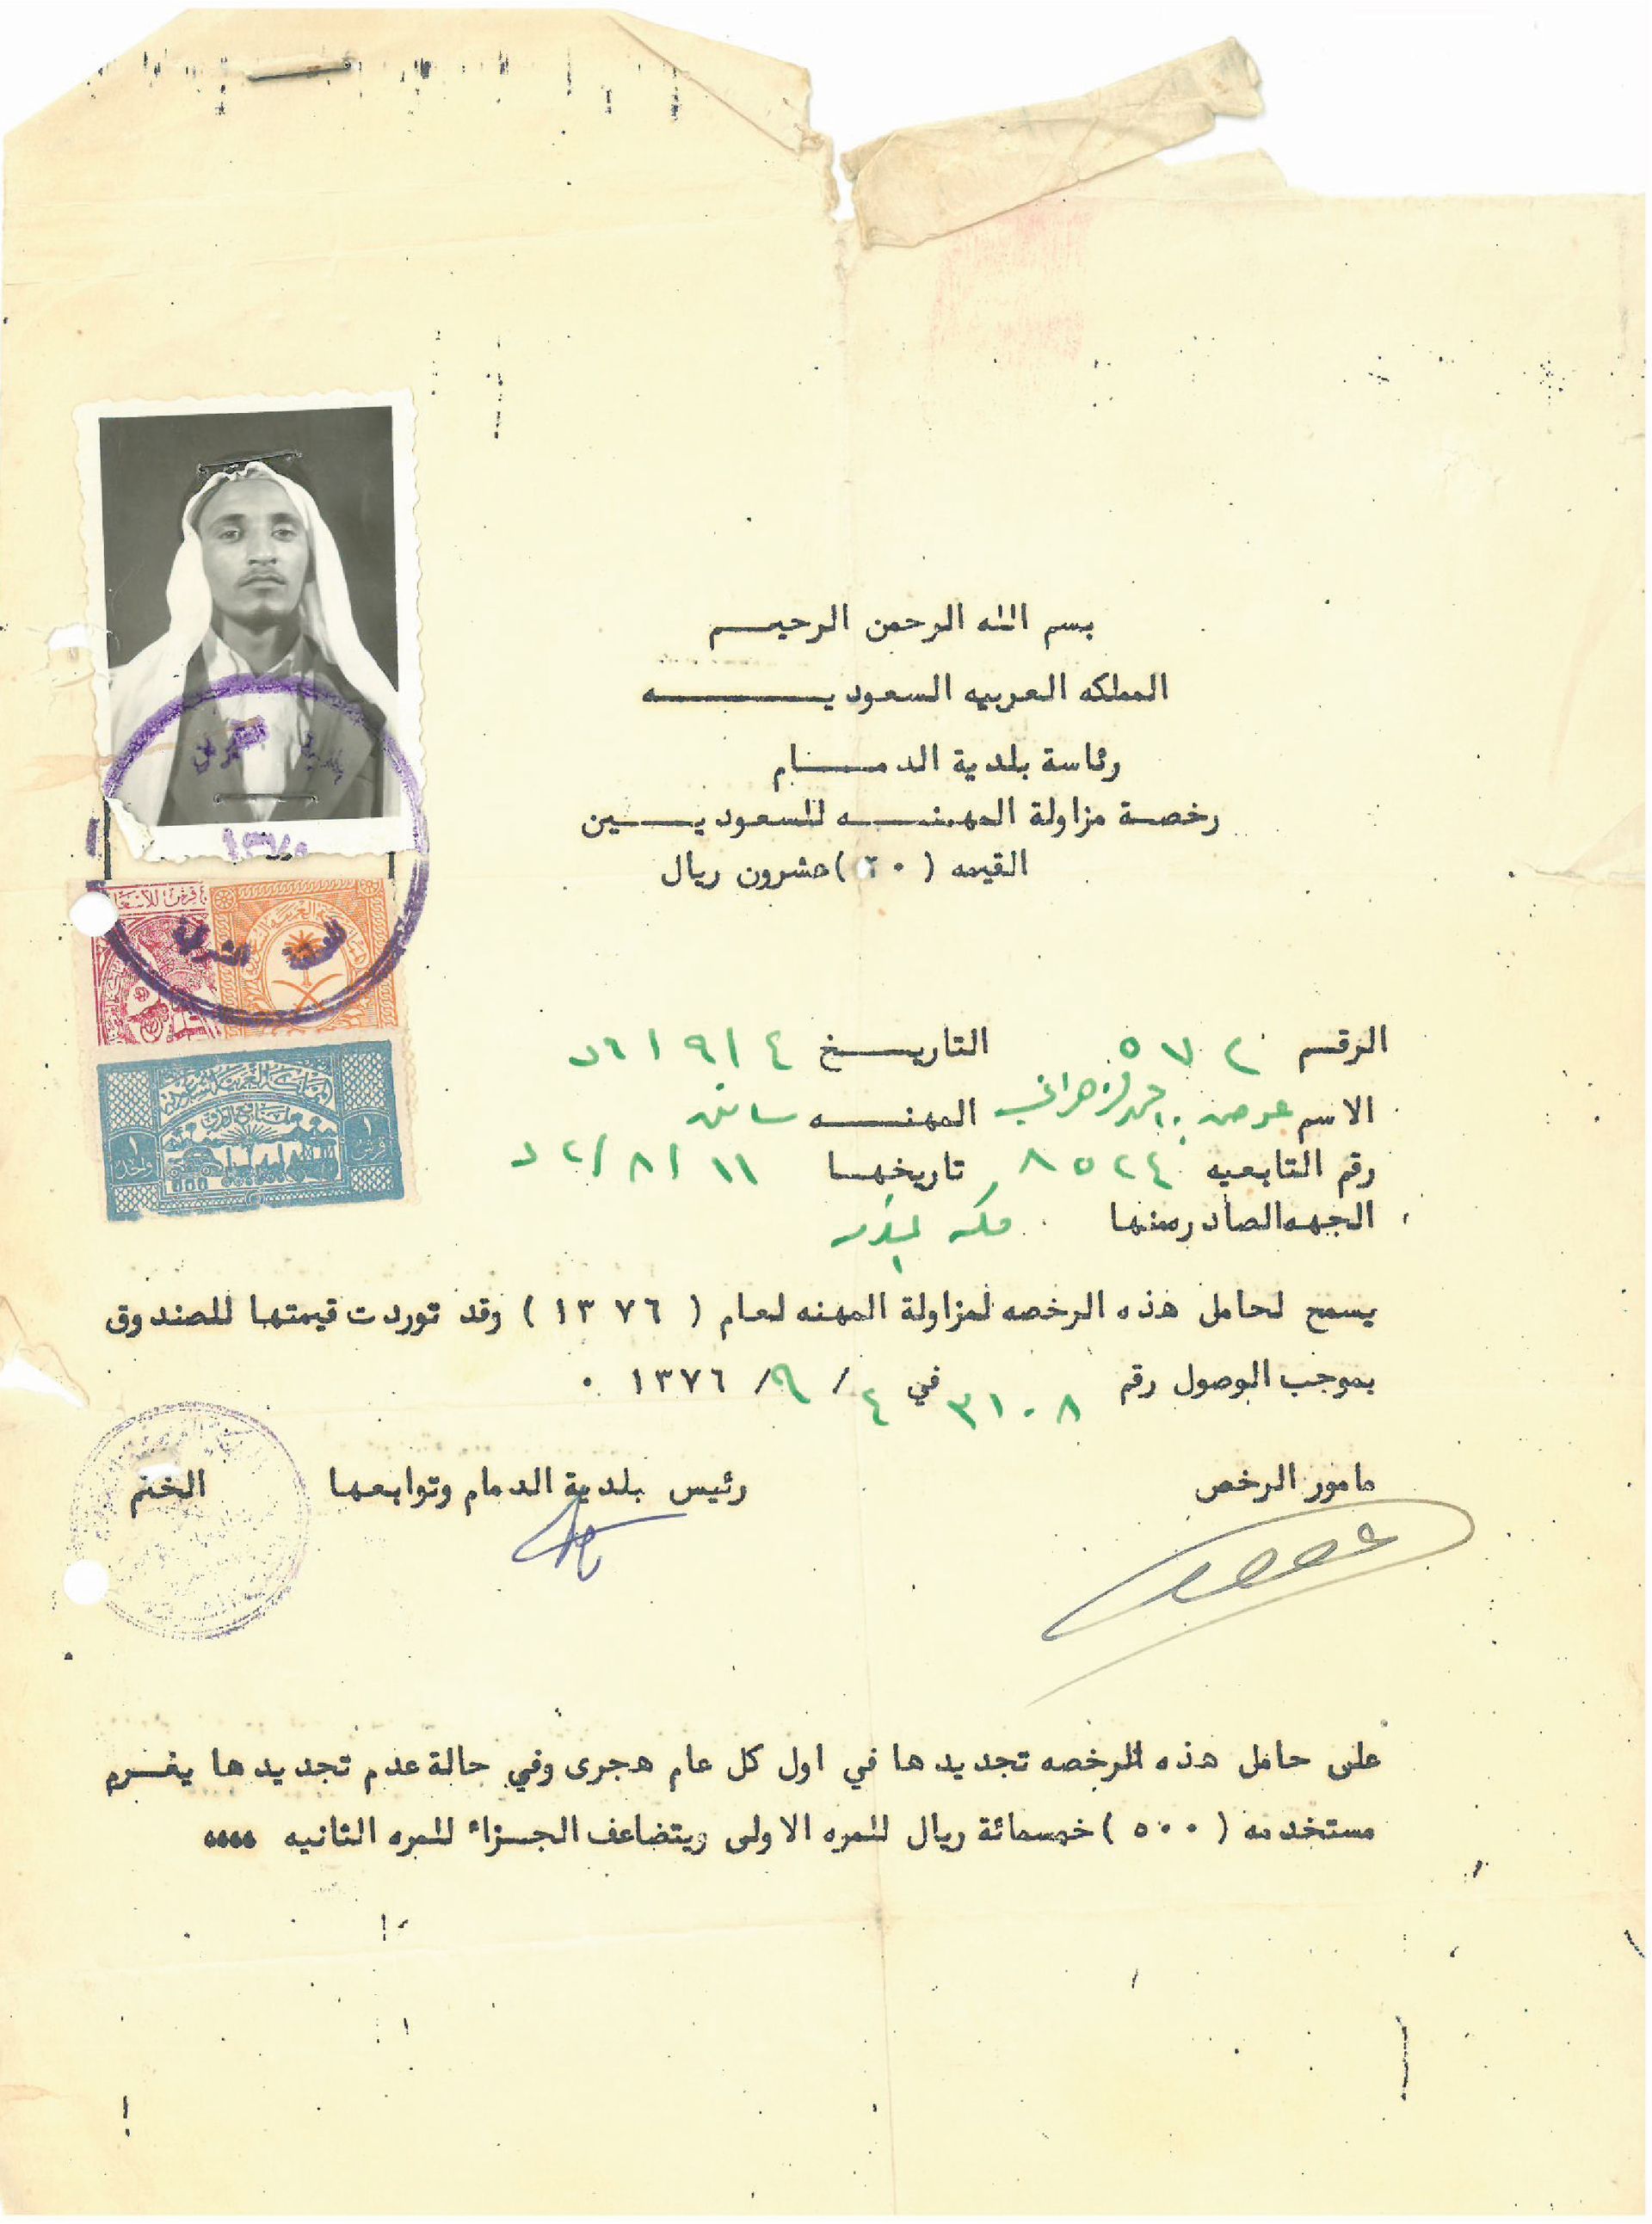 بسم الله الرحمن الرحيم
المملكه العربيه السعوديه
رئاسة بلدية الدمام
رخصة مزاولة المهنه للسعوديين
القيمه (٢٠) عشرون ريال
الرقم ٥٧٢ التاريخ ٤/٩/٧٦
الاسم عوض احمد الزهراني المهنه سائق
رقم التابعيه ٨٥٢٤ تاريخها ١١/٨/٧٢
الجهه الصادر منها مكه
يسمح لحامل هذه الرخصه لمزاولة المهنه لعام (١٣٧٦) وقد توردت قيمتها للصندوق
بموجب الوصول رقم ٣١٠٨ في ٤/٩/١٣٧٦ ٠
مامور الرخص رئيس بلدية الدمام وتوابعها الختم
على حامل هذه الرخصه تجديدها في اول كل عام هجرى وفي حالة عدم تجديدها يغرم
مستخدمه (٥٠٠) خمسمائة ريال للمره الاولى ويتضاعف الجزاء للمره الثانيه ٥٥٥٥
المملكة العربية السعودية
١ قرش
١ واحد